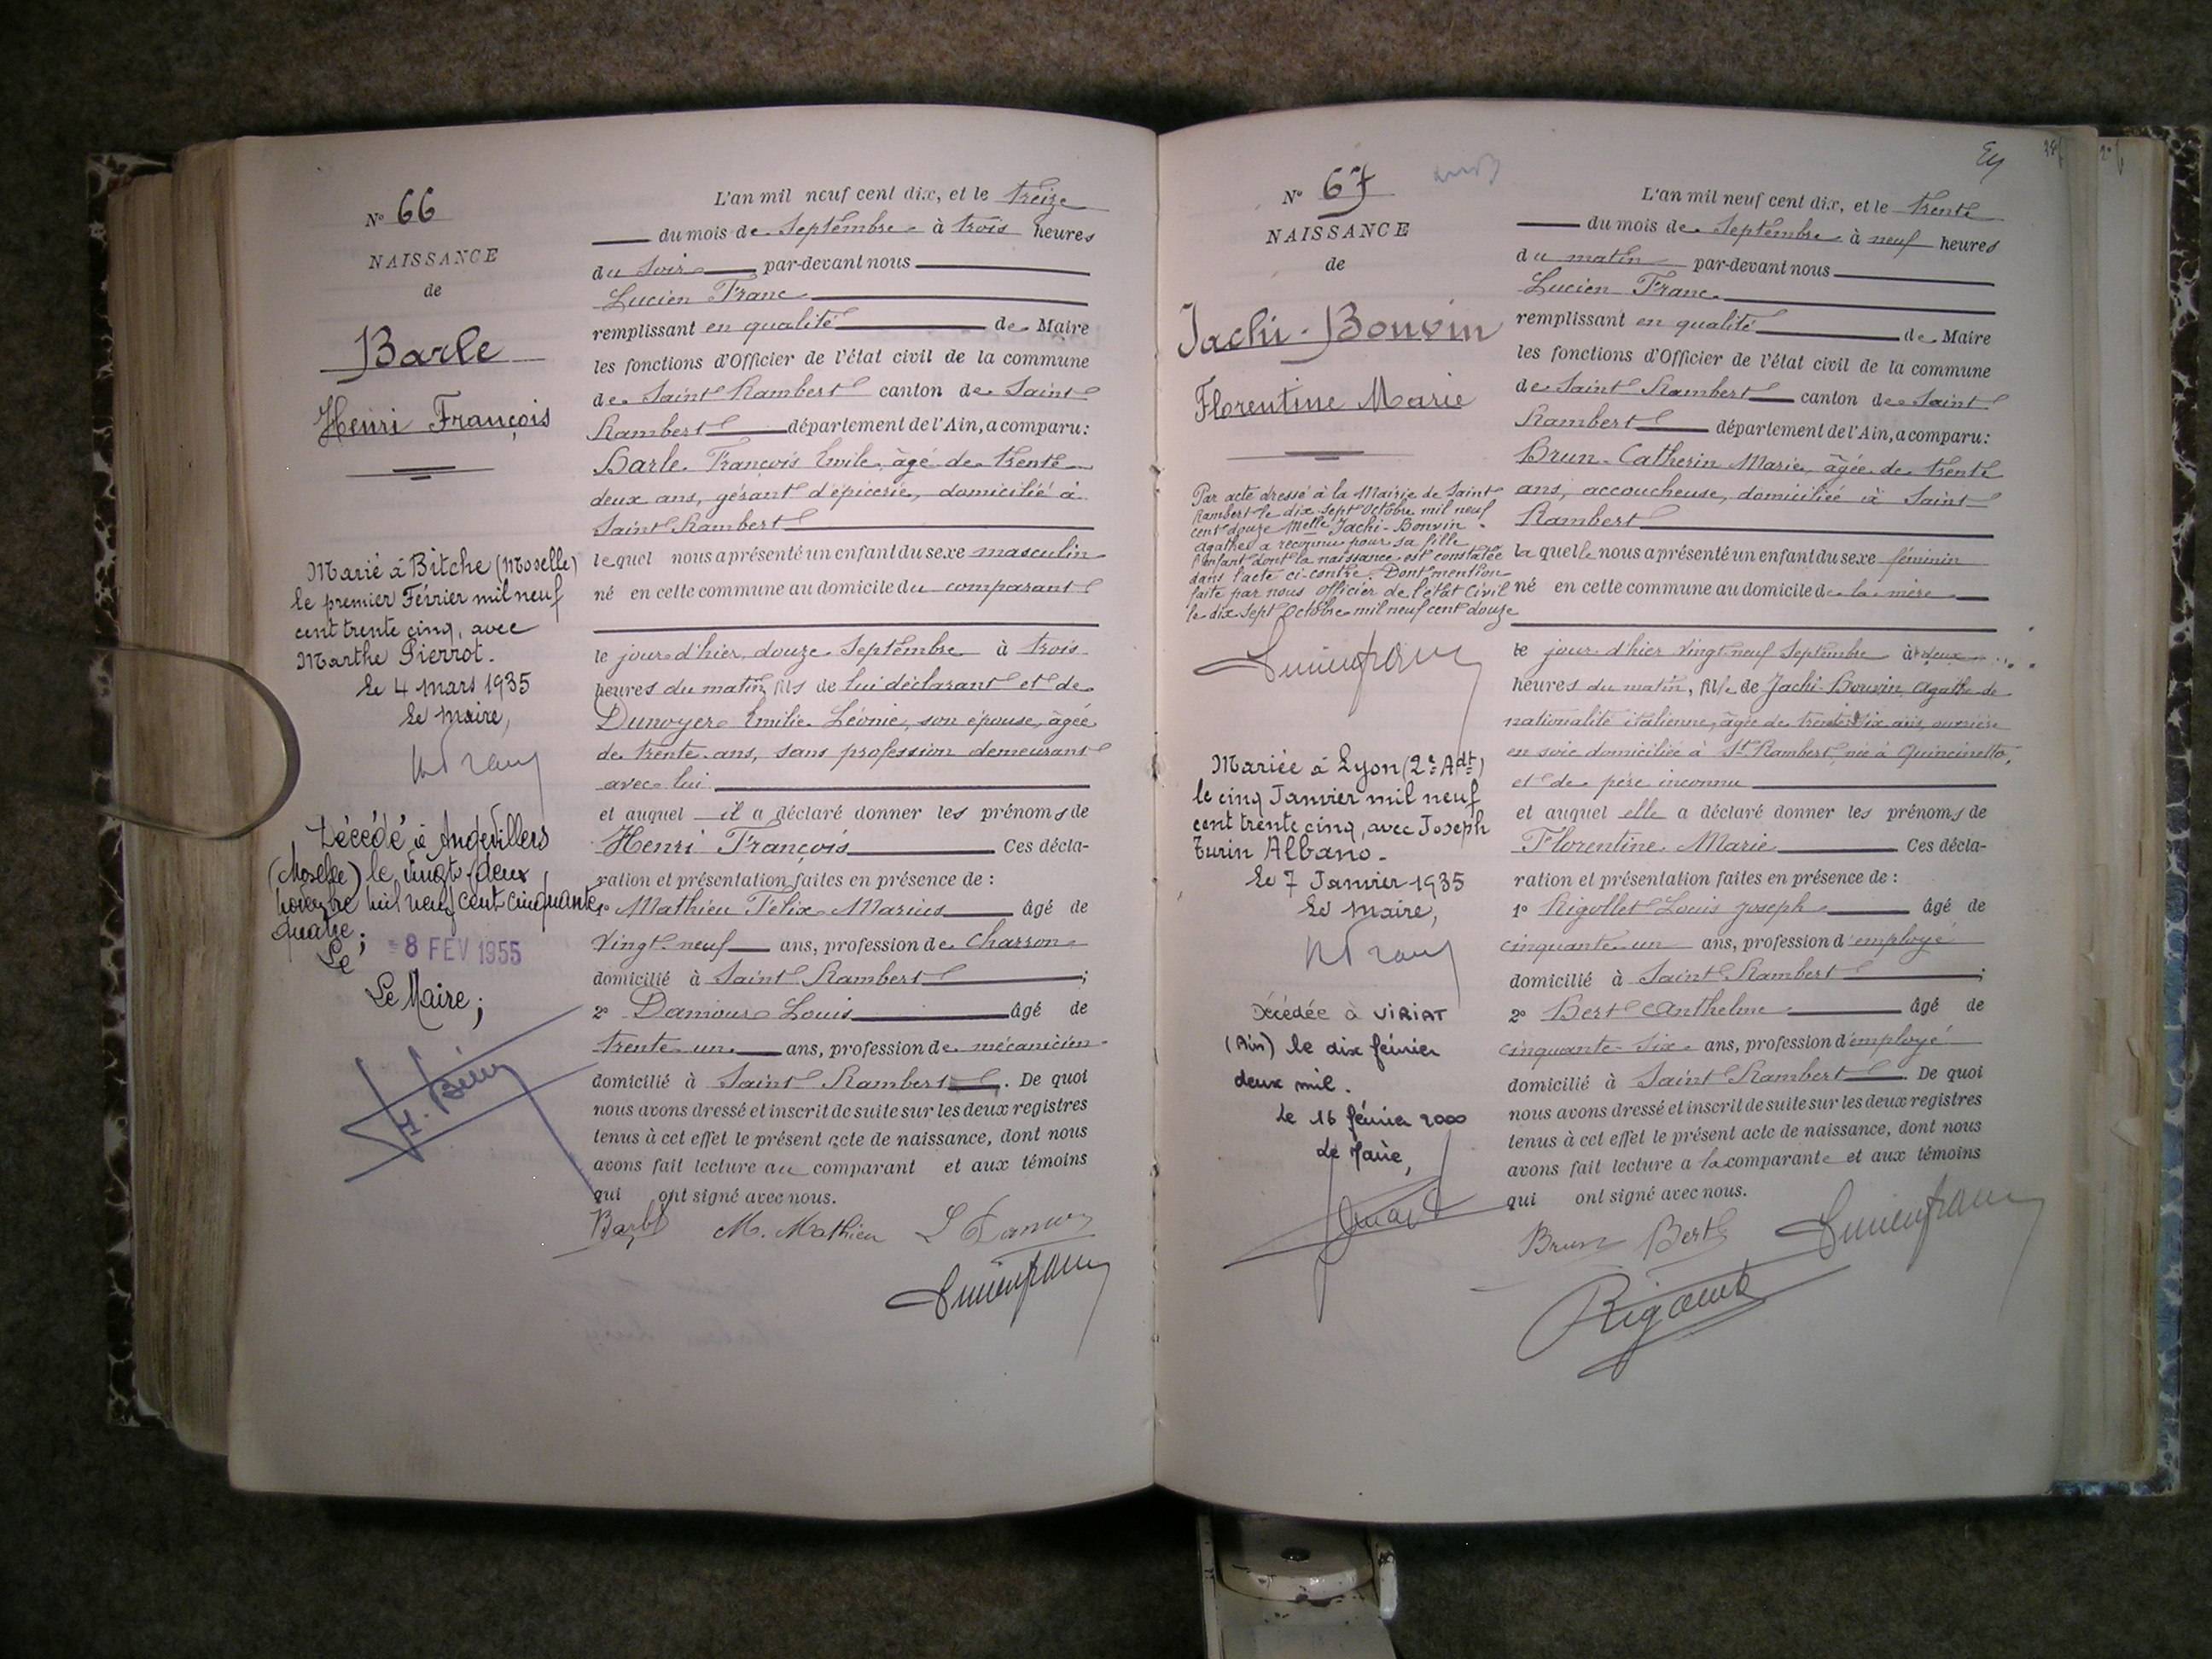 N° 66
NAISSANCE
de
Barle
Henri François
Marié à Bitche (Moselle)
le premier Février mil neuf
cent trente cinq, avec
Marthe Pierrot.
Le 4 mars 1935
Le Maire,
Décédé à Angevillers
(Moselle) le vingt-deux
novembre mil neuf cent cinquante
quatre;
Le = 8 FEV 1955
Le Maire;
L'an mil neuf cent dix, et le treize
du mois de Septembre à trois heures
du soir par-devant nous
Lucien Franc
remplissant en qualité de Maire
les fonctions d'Officier de l'état civil de la commune
de Saint Rambert canton de Saint
Rambert département de l'Ain, a comparu:
Barle François Emile, âgé de trente
deux ans, gérant d'épicerie, domicilié à
Saint Rambert
lequel nous a présenté un enfant du sexe masculin
né en cette commune au domicile du comparant
le jour d'hier, douze Septembre à trois
heures du matin, fils de lui déclarant et de
Dunoyer Emilie Léonie, son épouse, âgée
de trente ans, sans profession demeurant
avec lui
et auquel il a déclaré donner les prénoms de
Henri François Ces décla-
ration et présentation faites en présence de :
1° Mathieu Félix Marius âgé de
vingt neuf ans, profession de charron
domicilié à Saint Rambert ;
2° Damour Louis âgé de
trente un ans, profession de mécanicien
domicilié à Saint Rambert. De quoi
nous avons dressé et inscrit de suite sur les deux registres
tenus à cet effet le présent acte de naissance, dont nous
avons fait lecture au comparant et aux témoins
qui ont signé avec nous.
Barle M. Mathieu L Damour
Lucien Franc
N° 67
NAISSANCE
de
Jachi-Bonvin
Florentine Marie
Par acte dressé à la Mairie de Saint
Rambert le dix sept Octobre mil neuf
cent douze Melle Jachi-Bonvin
Agathe a reconnu pour sa fille
l'enfant dont la naissance est constatée
dans l'acte ci-contre. Dont mention
faite par nous Officier de l'état Civil
le dix sept Octobre mil neuf cent douze
Lucien Franc
Mariée à Lyon (2e Adt)
le cinq Janvier mil neuf
cent trente cinq, avec Joseph
Turin Albano.
Le 7 Janvier 1935
Le Maire,
Décédée à VIRIAT
(Ain) le dix février
deux mil.
Le 16 février 2000
Le Maire,
L'an mil neuf cent dix, et le trente
du mois de Septembre à neuf heures
du matin par-devant nous
Lucien Franc
remplissant en qualité de Maire
les fonctions d'Officier de l'état civil de la commune
de Saint Rambert canton de Saint
Rambert département de l'Ain, a comparu:
Brun Catherin Marie, âgée de trente
ans, accoucheuse, domiciliée à Saint
Rambert
laquelle nous a présenté un enfant du sexe féminin
né en cette commune au domicile de la mère
le jour d'hier vingt neuf Septembre à deux
heures du matin, fille de Jachi-Bonvin Agathe de
nationalité italienne, âgée de trente six ans, ouvrière
en soie domiciliée à St Rambert, née à Quincinetto,
et de père inconnu
et auquel elle a déclaré donner les prénoms de
Florentine Marie Ces décla-
ration et présentation faites en présence de :
1° Rigollet Louis Joseph âgé de
cinquante un ans, profession d'employé
domicilié à Saint Rambert ;
2° Bert Anthelme âgé de
cinquante six ans, profession d'employé
domicilié à Saint Rambert. De quoi
nous avons dressé et inscrit de suite sur les deux registres
tenus à cet effet le présent acte de naissance, dont nous
avons fait lecture a la comparante et aux témoins
qui ont signé avec nous.
Brun Bert Lucien Franc